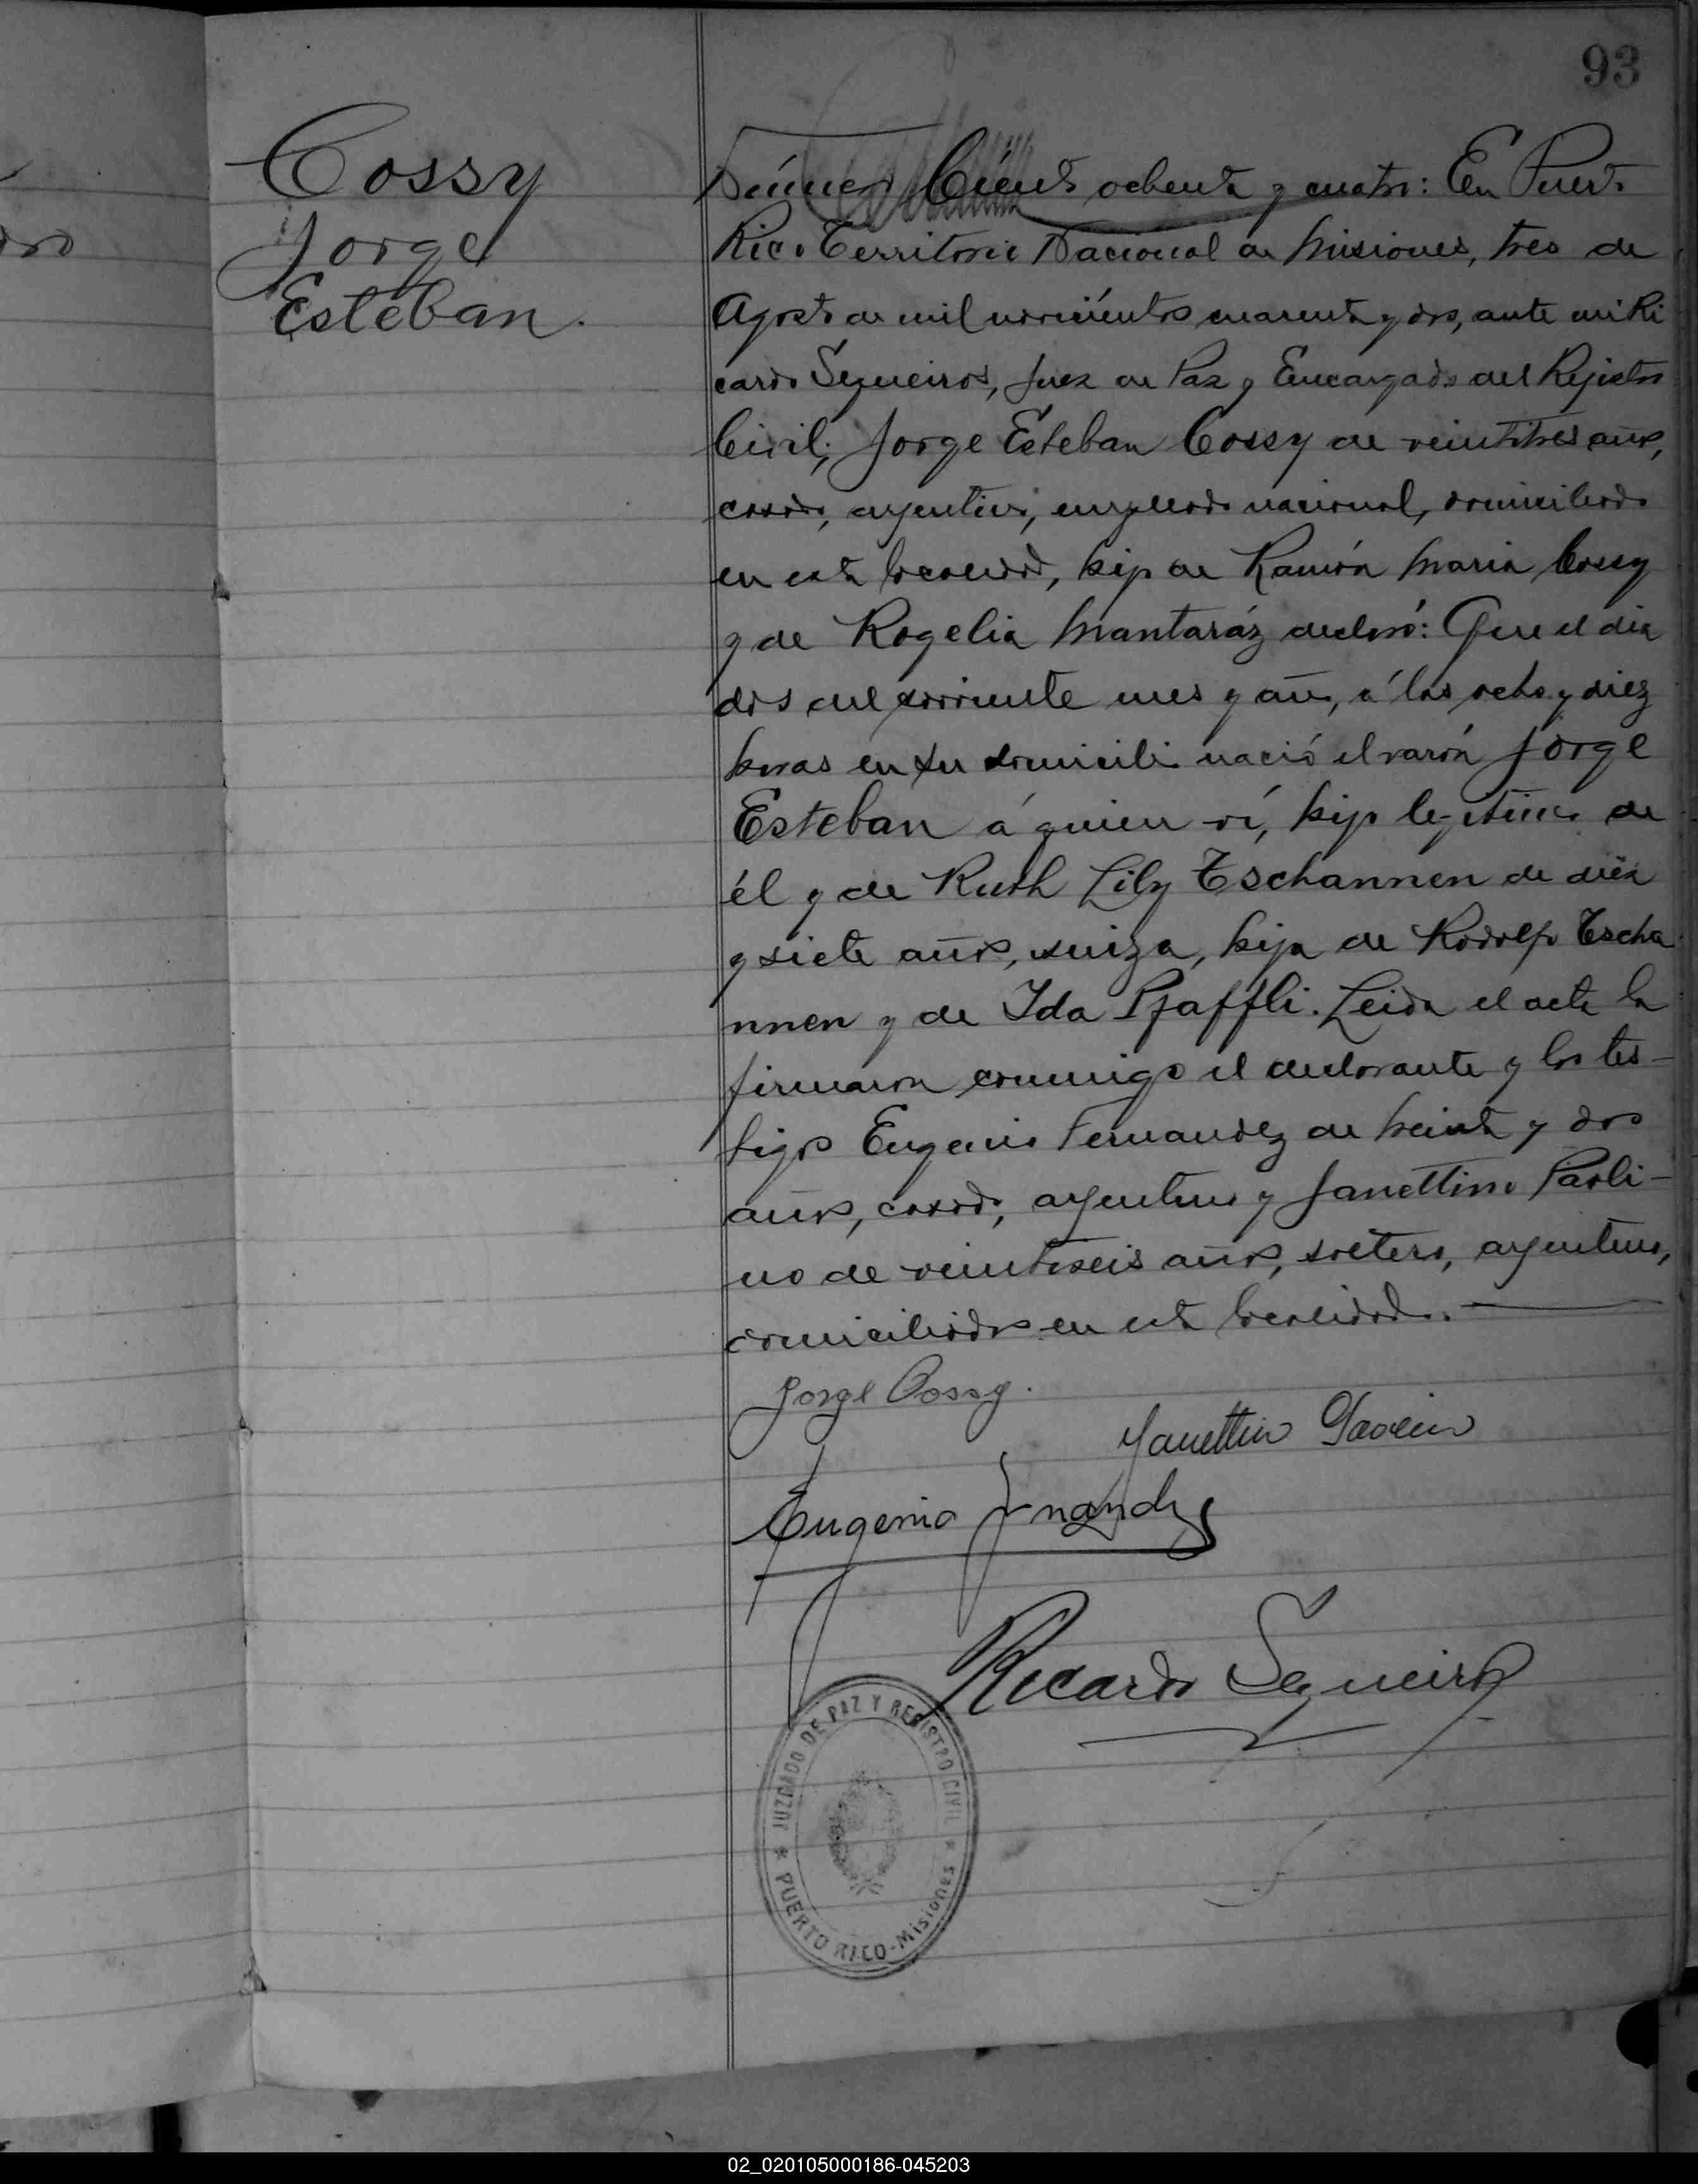 93
Cossy
Jorge
Esteban.
Número Ciento ochenta y cuatro: En Puerto
Rico Territorio Nacional de Misiones, tres de
Agosto de mil novecientos cuarenta y dos, ante mi Ri
cardo Sequeiros, Juez de Paz y Encargado del Rejistro
Civil; Jorge Esteban Cossy de veintitres años,
casado, argentino, empleado nacional, domiciliado
en esta localidad, hijo de Ramón Maria Cossy
y de Rogelia Mantaráz declaró: Que el dia
dos del corriente mes y año, á las ocho y diez
horas en su domicilio nació el varón Jorge
Esteban á quien ví, hijo legitimo de
él y de Ruth Lily Tschannen de diez
y siete años, suiza, hija de Rodolfo Tscha
nnen y de Ida Pfaffli. Leida el acta la
firmaron conmigo el declarante y los tes-
tigos Eugenio Fernandez de treinta y dos
años, casado, argentino y Janettino Paoli-
no de veintiseis años, soltero, argentino,
domiciliados en esta localidad.
Jorge Cossy.
Eugenio Fernandez
Ricardo Sequeiros
JUZGADO DE PAZ Y REGISTRO CIVIL
PUERTO RICO - Misiones
02_020105000186-045203